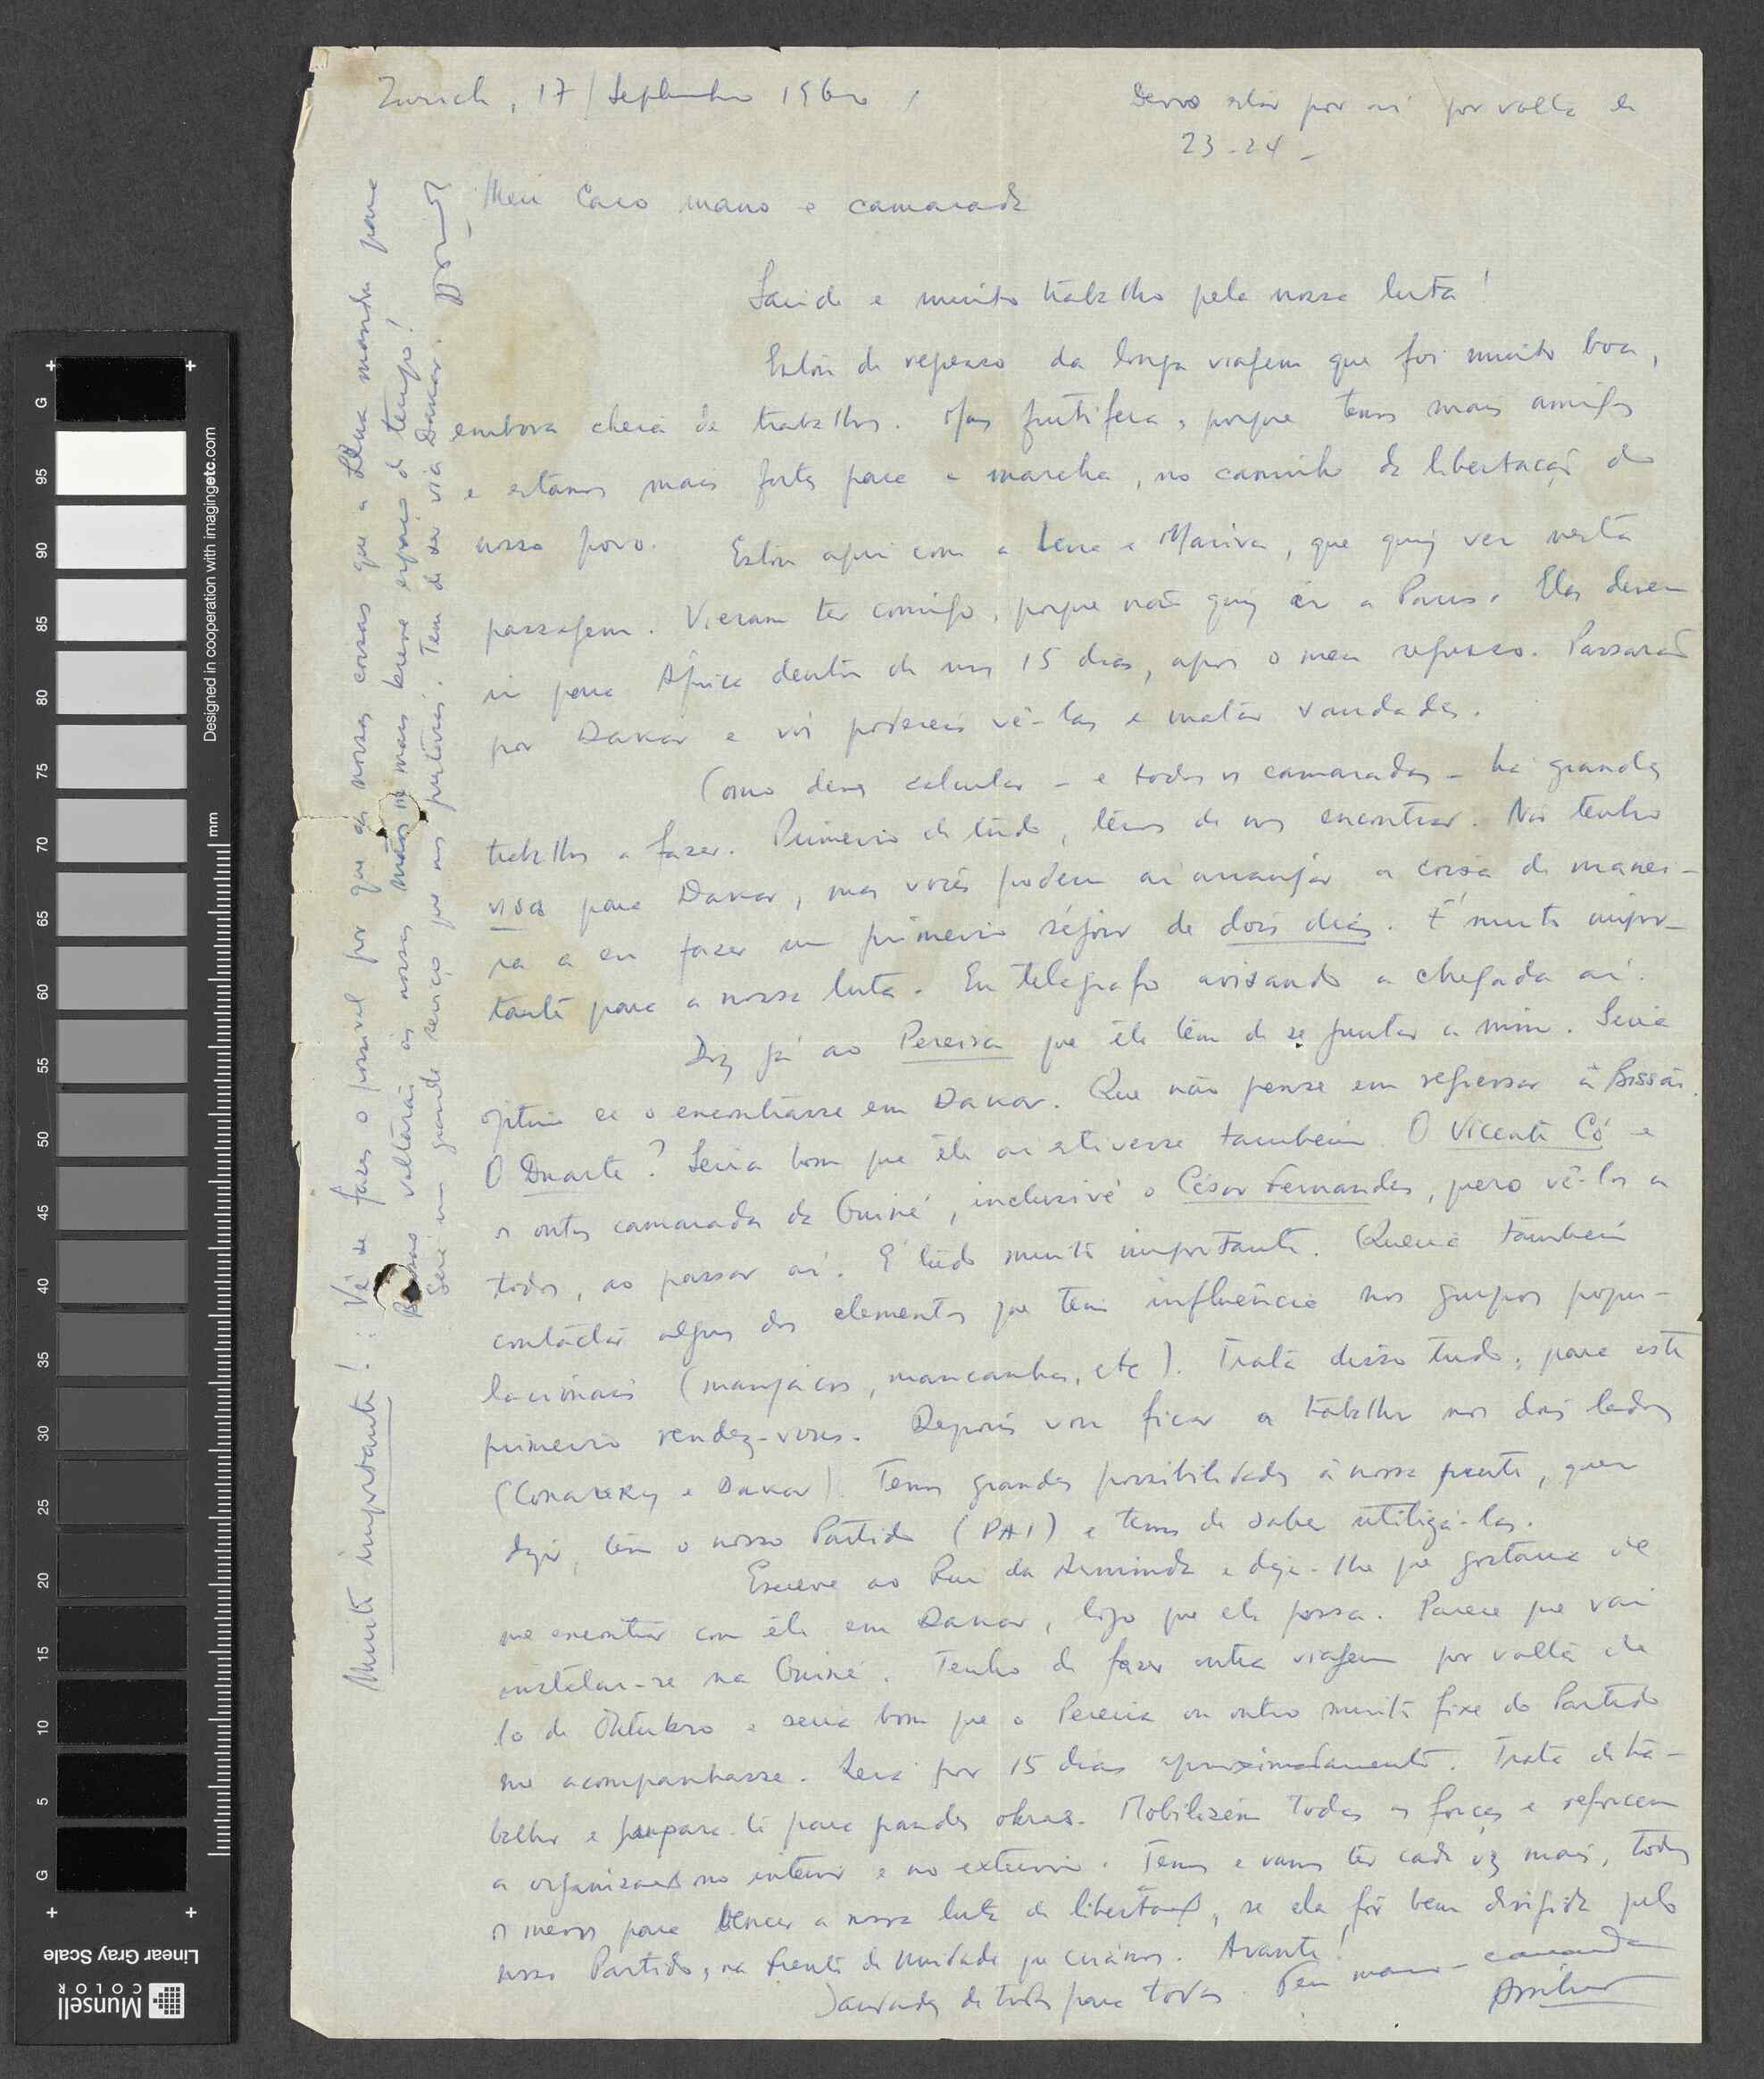 Zurich, 17/Septembro 1960
Devo estar por aí por volta de
23-24-
Meu Caro mano e camarada
Saúde e muito trabalho pela nossa luta!
Estou de regresso da longa viagem que foi muito boa,
embora cheia de trabalhos. Mas frutífera, porque temos mais amigos
e estamos mais fortes para a marcha, no caminho da libertação do
nosso povo. Estou aqui com a Lena e Mariva, que quiz ver nesta
passagem. Vieram ter comigo, porque não quiz ir a Paris. Elas devem
ir para África dentro de uns 15 dias, após o meu regresso. Passarão
por Dakar e vós podereis vê-las e matar saudades.
Como deves calcular - e todos os camaradas - há grandes
trabalhos a fazer. Primeiro de tudo, temos de nos encontrar. Não tenho
visa para Dakar, mas vocês podem aí arranjar a coisa de manei-
ra a eu fazer um primeiro séjour de dois dias. É muito impor-
tante para a nossa luta. Eu telegrafo avisando a chegada aí.
Diz já ao Pereira que êle tem de se juntar a mim. Seria
óptimo se o encontrasse em Dakar. Que não pense em regressar à Bissau.
O Duarte? Seria bom que êle aí estivesse também. O Vicente Có e
os outros camaradas da Guiné, inclusivé o César Fernandes, quero vê-los a
todos, ao passar aí. É tudo muito importante. Queria também
contactar alguns dos elementos que têm influência nos grupos popu-
lacionais (manjacos, mancanhas, etc). Trata disso tudo, para este
primeiro rendez-vous. Depois vou ficar a trabalhar nos dois lados
(Conakry e Dakar). Temos grandes possibilidades à nossa frente, quer
dizer, tem o nosso Partido (PAI) e temos de saber utilizá-las.
Escreve ao Rui da Arminda e diz-lhe que gostaria de
me encontrar com êle em Dakar, logo que ele possa. Parece que vai
instalar-se na Guiné. Tenho de fazer outra viagem por volta de
10 de Outubro e seria bom que o Pereira ou outro muito fixe do Partido
me acompanhasse. Será por 15 dias aproximadamente. Trata de tra-
balhar e prepara-te para grandes obras. Mobilizem todas as forças e reforcem
a organização no interior e no exterior. Temos e vamos ter cada vez mais, todos
os meios para vencer a nossa luta de libertação, se ela fôr bem dirigida pelo
nosso Partido, na frente de unidade que criámos. Avante!
Saudades de todos para todos. Teu mano - camarada
Amílcar
Muito importante!: Vê se fazes o possível por que as nossas coisas que a Lena mandou para
Bissau voltarão às nossas mãos no mais breve espaço de tempo!
Será um grande serviço que nos prestais. Tem de ser via Dakar.
G
95
90
85
80
75
70
65
60
55
50
45
40
35
30
25
20
15
10
5
G
mm
Designed in cooperation with imagingetc.com
Linear Gray Scale
Munsell
COLOR